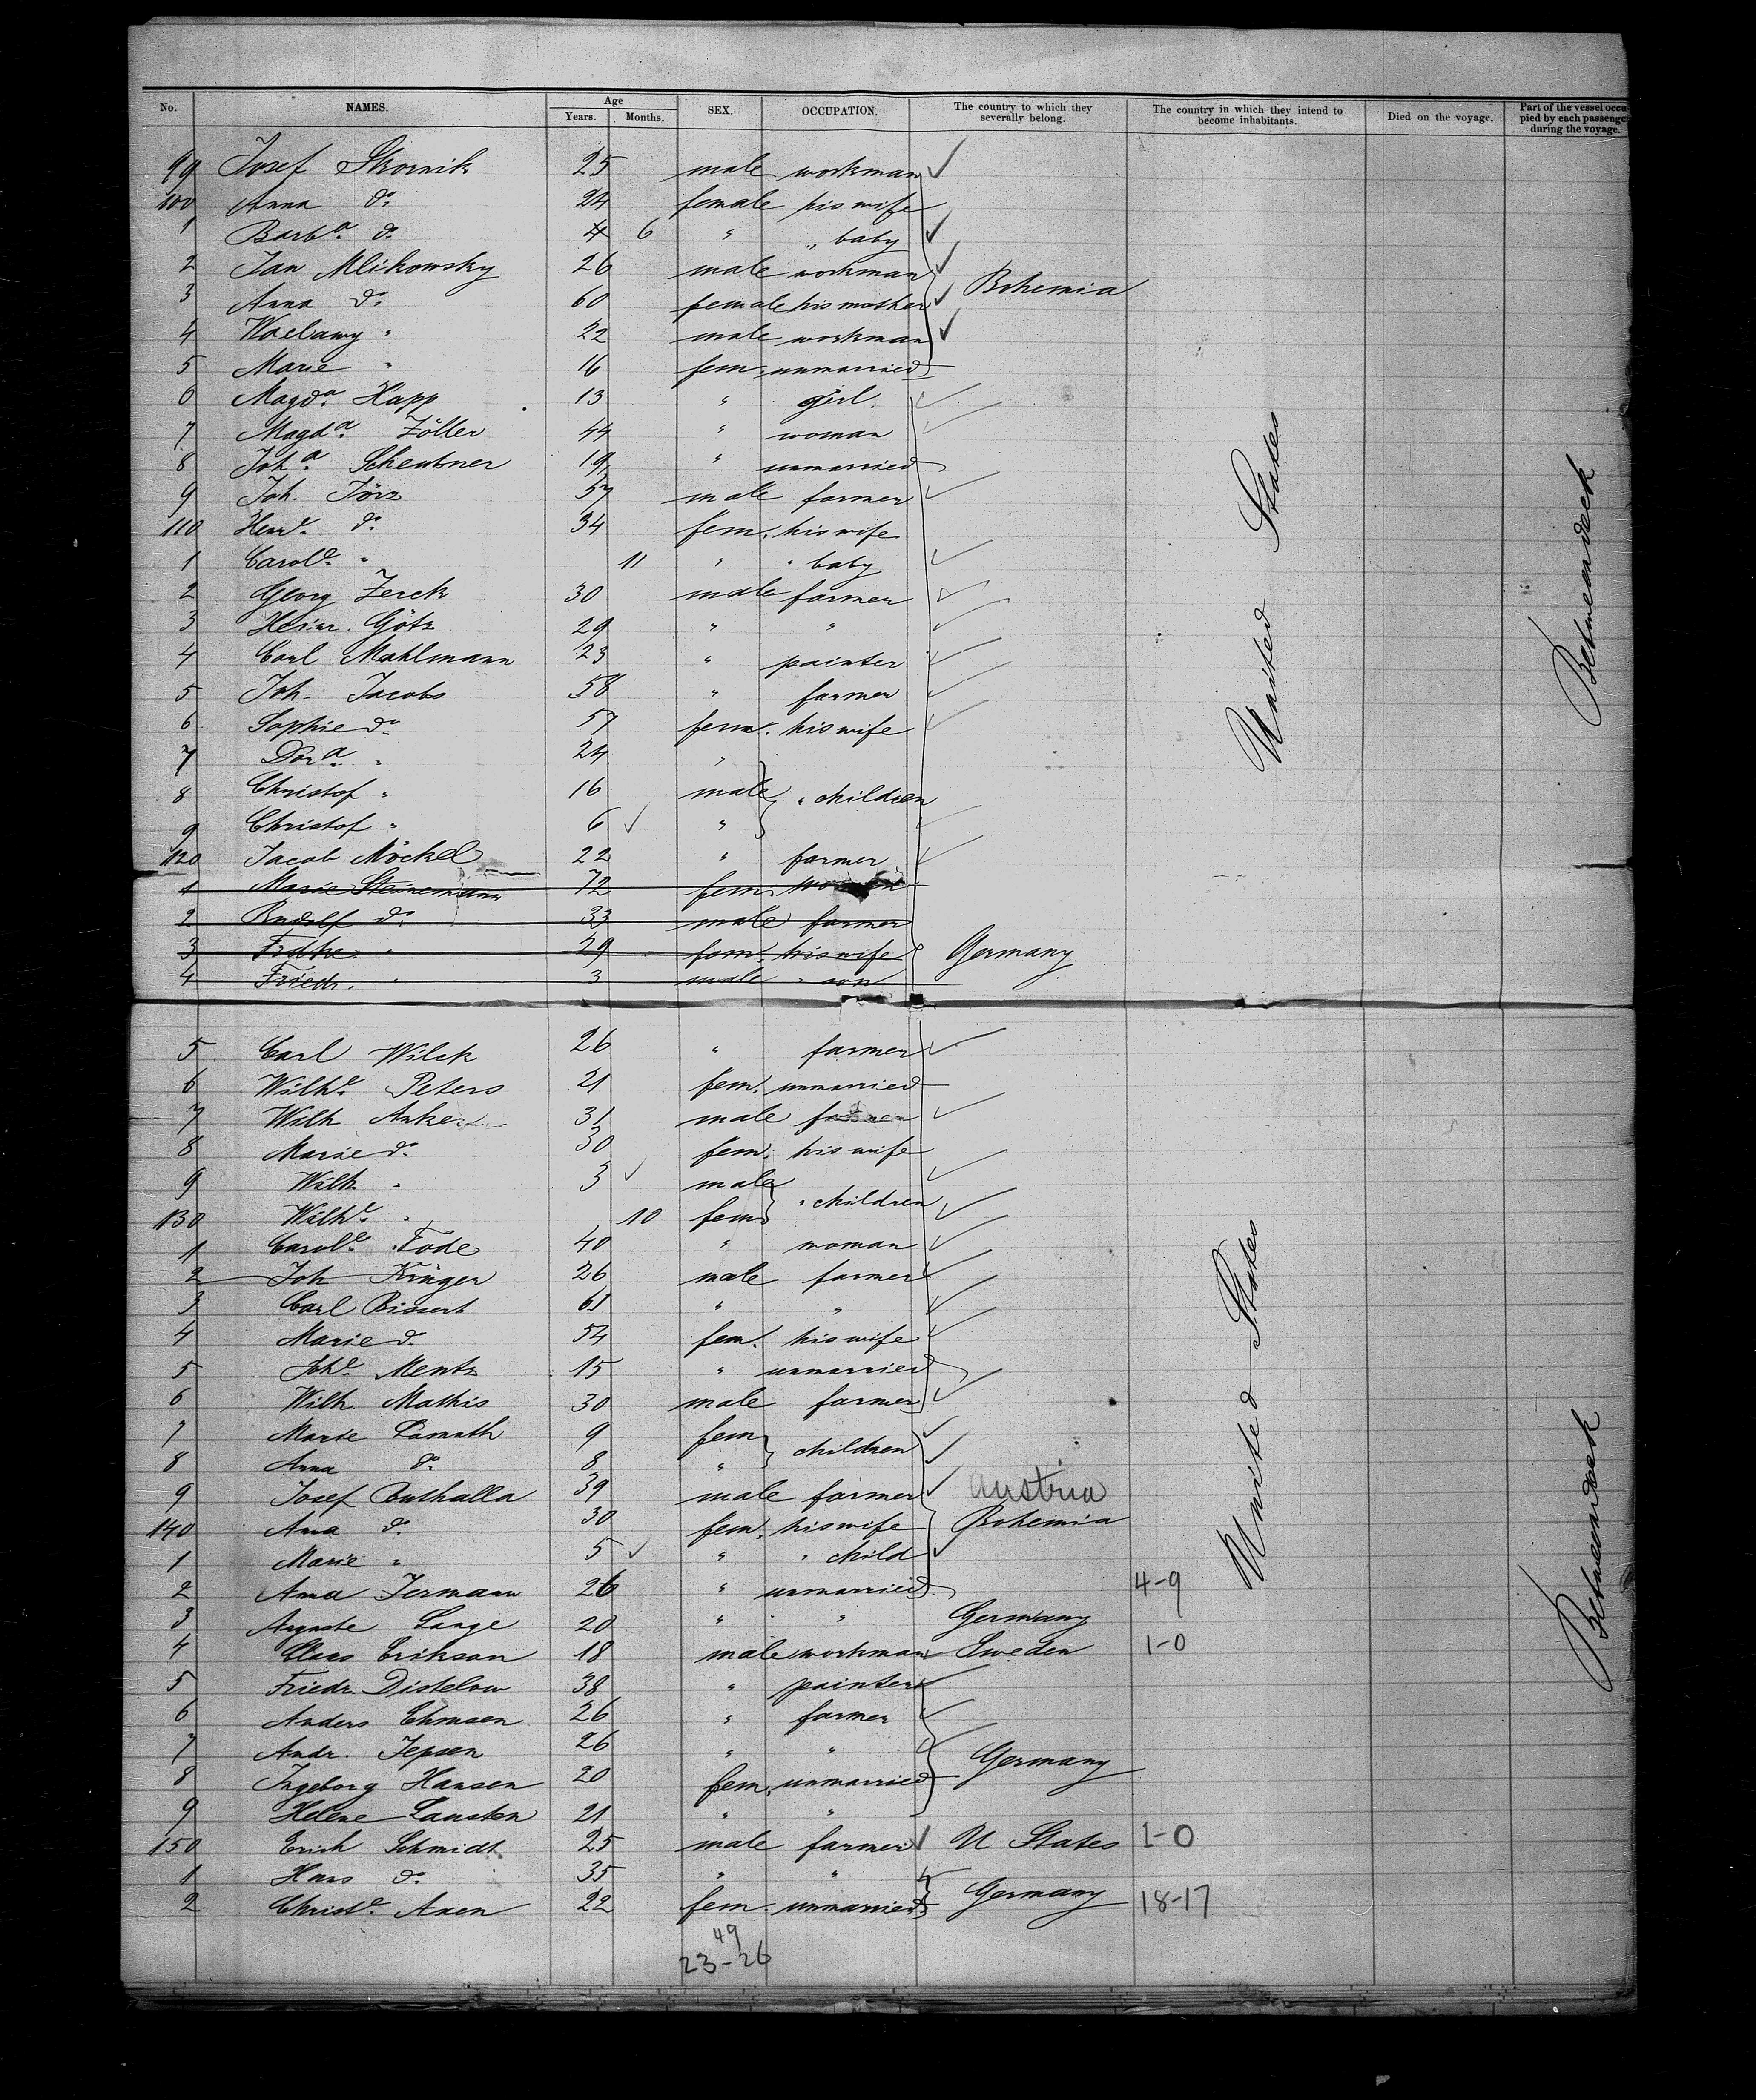 No. NAMES. Age Years. Months. SEX. OCCUPATION. The country to which they severally belong. The country in which they intend to become inhabitants. Died on the voyage. Part of the vessel occupied by each passenger during the voyage.
99 Josef Skornik 25 male workman
100 Anna do. 24 female his wife
1 Barba. do. 4 6 " " baby
2 Jan Mlikowsky 26 male workman
3 Anna do. 60 female his mother Bohemia
4 22 male workman
5 Marie " 16 fem. unmarried
6 Magda. Happ 13 " girl.
7 Magda. Zöller 44 " woman
8 Joha. Scheubner 19 " unmarried
9 Joh. Jörz 57 male farmer
110 Henre. do. 34 fem. his wife
1 Carole. " 11 " " baby
2 Georg Zerck 30 male farmer
3 Heinr. Götz 29 " "
4 Carl Mahlmann 23 " painter
5 Joh. Jacobs 58 " farmer
6 Sophie do. 57 fem. his wife
7 Dora. " 24 "
8 Christof " 16 male " children
9 Christof " 6 "
120 Jacob Möckel 22 " farmer
1 Marie Steinemann 72 fem. woman
2 Rudolf do. 33 male farmer
3 Fridke " 29 fem. his wife Germany
4 Friedr. " 3 male " son
United States
Betweendeck
5 Carl Wilck 26 " farmer
6 Wilhe. Peters 21 fem. unmarried
7 Wilh Anker 31 male farmer
8 Marie do. 30 fem. his wife
9 Wilh. " 3 male " children
130 Wilhe. " 10 fem
1 Carole. Tode 40 " woman
2 Joh Krüger 26 male farmer
3 Carl Bissert 61 " "
4 Marie do. 54 fem. his wife
5 Johe. Mentz 15 " unmarried
6 Wilh. Mathis 30 male farmer
7 Marie Lamath 9 fem children
8 Anna do. 8 "
9 Josef Buthalla 39 male farmer Austria
140 Anna do. 30 fem. his wife Bohemia
1 Marie " 5 " " child
2 Anna Jermann 26 " unmarried 4-9
3 Auguste Lange 20 " " Germany
4 Claes Erikson 18 male workman Sweden 1-0
5 Friedr. Distelow 38 " painter
6 Anders 26 " farmer
7 Andr. Jepsen 26 " " Germany
8 Ingeborg Hansen 20 fem. unmarried
9 Helene Lausten 21 " "
150 Erich Schmidt 25 male farmer U States 1-0
1 Hans do. 35 " "
2 Christe. Axen 22 fem. unmarried Germany 18-17
United States
Betweendeck
49
23-26